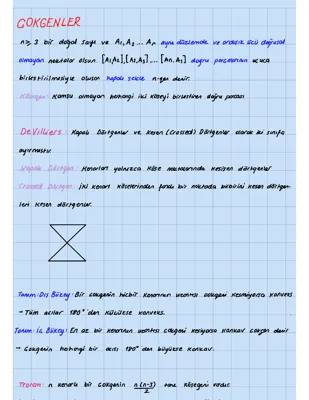 ÇOKGENLER
n≥ 3 bir doğal sayı ve A₁, A₂ ... Aₙ aynı düzlemde ve ardışık üçü doğrusal
olmayan noktalar olsun. [A₁A₂], [A₂A₃], ... [An, A₁] doğru parçalarının uç uca
birleştirilmesiyle oluşan kapalı şekle n-gen denir.
Köşegen: Komşu olmayan herhangi iki köşeyi birleştiren doğru parçası
DeVilliers: Kapalı Dörtgenler ve Kesen (Crossed) Dörtgenler olarak iki sınıfa
ayırmıştır.
Kapalı Dörtgen: Kenarları yalnızca köşe noktalarında kesişen dörtgenler
Crossed Dörtgen: İki kenarı köşelerinden farklı bir noktada birbirini kesen dörtgen-
leri kesen dörtgenler.
Tanım: Dış Bükey: Bir çokgenin hiçbir kenarının uzantısı çokgeni kesmiyorsa konveks
→ Tüm açılar 180° den küçükse konveks.
Tanım: İç Bükey: En az bir kenarının uzantısı çokgeni kesiyorsa konkav çokgen denir
→ Çokgenin herhangi bir açısı 180° den büyükse konkav.
Teorem: n kenarlı bir çokgenin n(n-3)/2 tane köşegeni vardır.